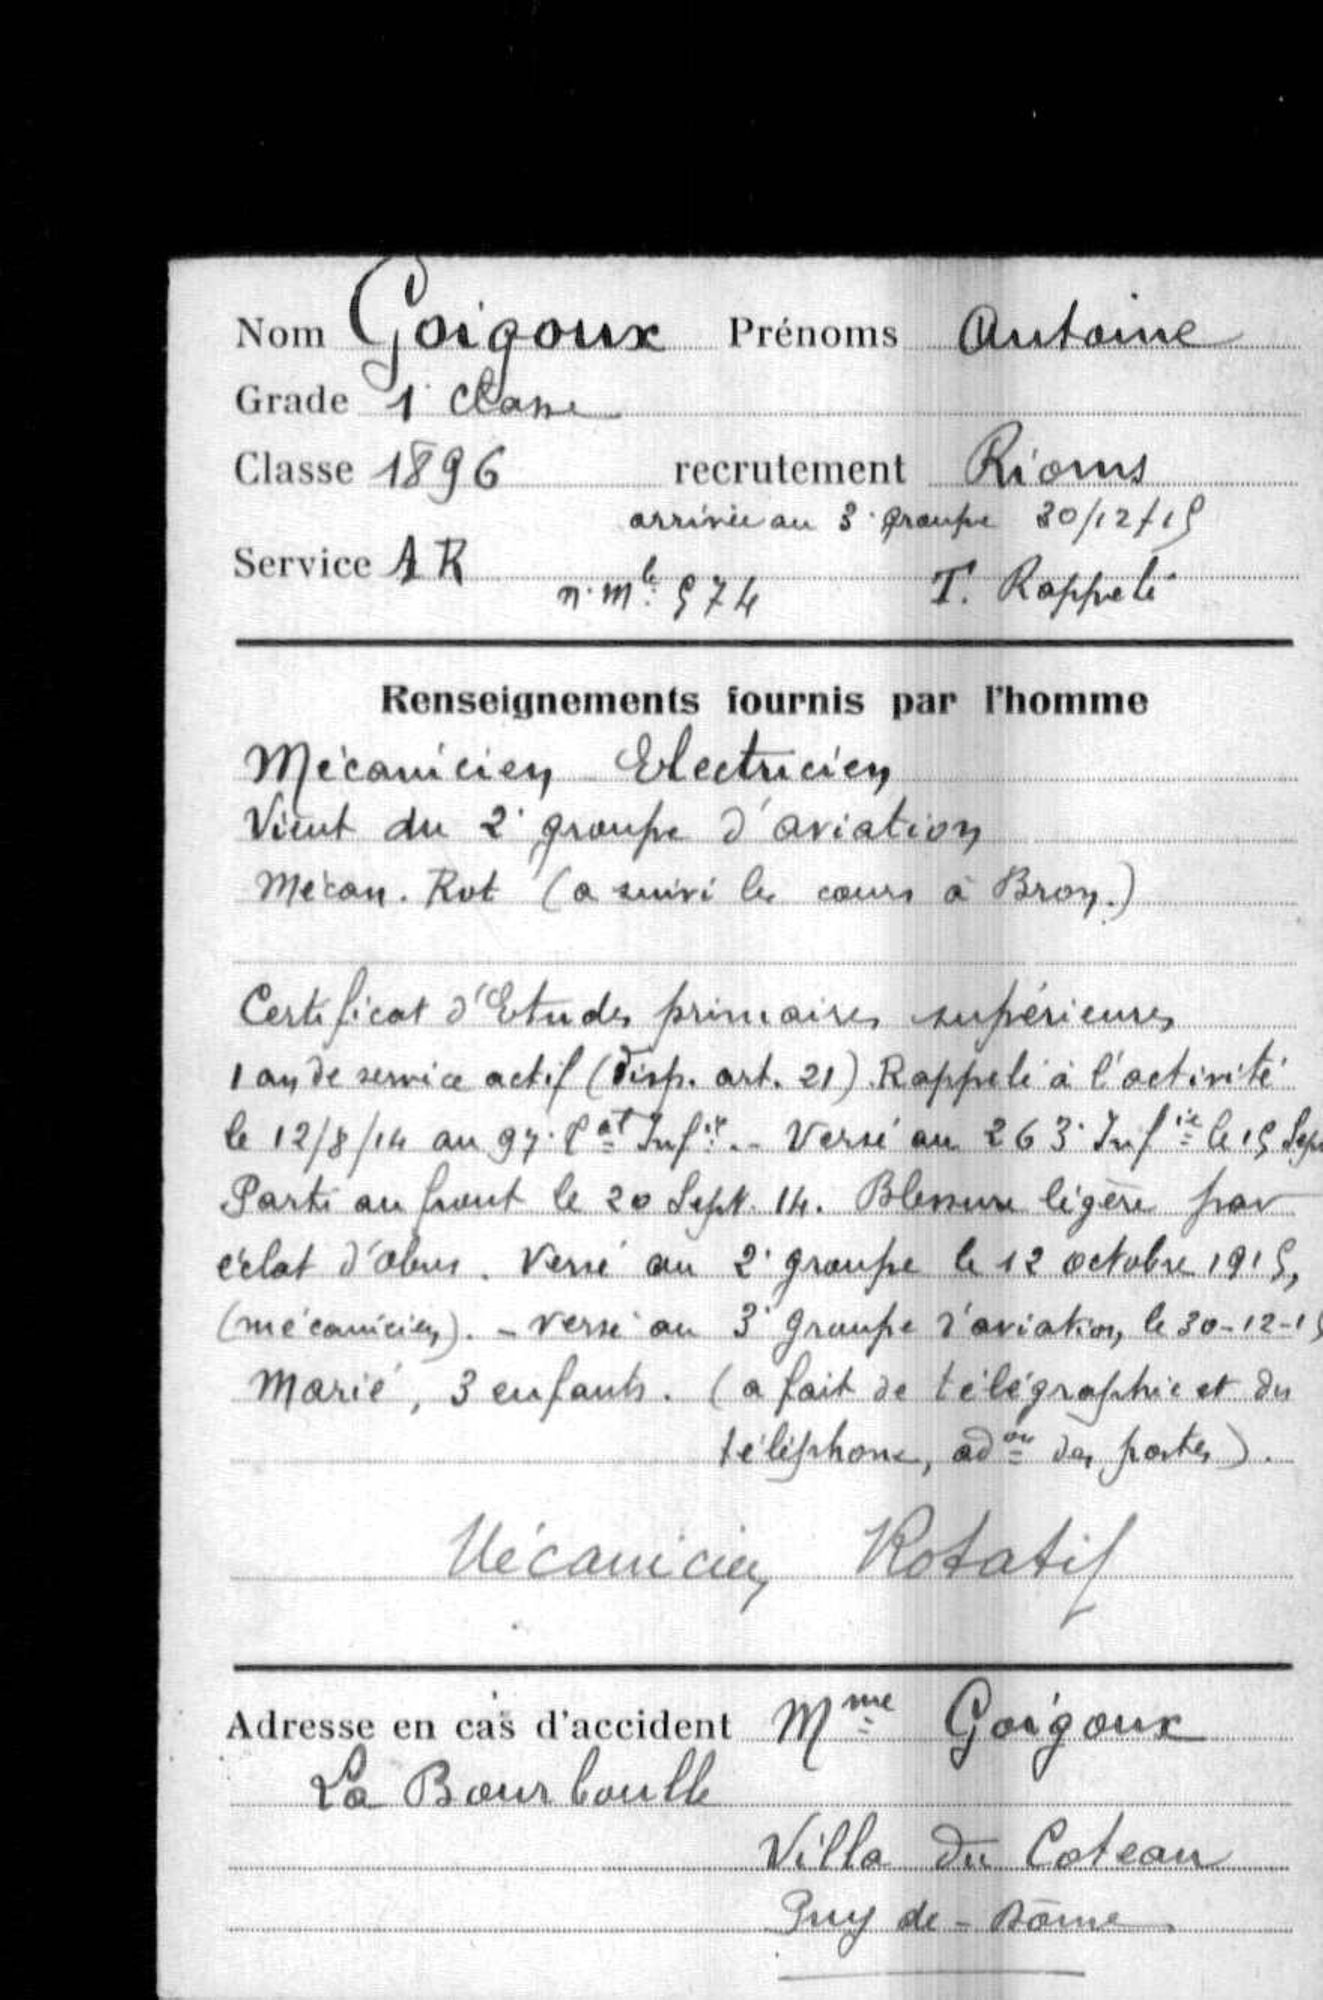 Nom Goigoux Prénoms Antoine
Grade 1e Classe
Classe 1896 recrutement Rioms
arrivée au 3e groupe 30/12/15
Service AR
n. mle: 574 T. Rappelé
Renseignements fournis par l'homme
Mécanicien Electricien
Vient du 2e groupe d'aviation
Mécan. Rot (a suivi les cours à Bron.)
Certificat d'Etudes primaires supérieures
1 an de service actif (disp. art. 21). Rappelé à l'activité
le 12/8/14 au 97e Infie. - Versé au 263e Infie le 15 Sept
Parti au front le 20 Sept. 14. Blessure légère par
éclat d'obus. Versé au 2e groupe le 12 octobre 1915,
(mécanicien). - versé au 3e groupe d'aviation, le 30-12-15
Marié, 3 enfants. (a fait de télégraphie et du
téléphone, adon des postes).
Mécanicien Rotatif
Adresse en cas d'accident Mme Goigoux
La Bourboulle
Villa du Coteau
Puy de - Dôme